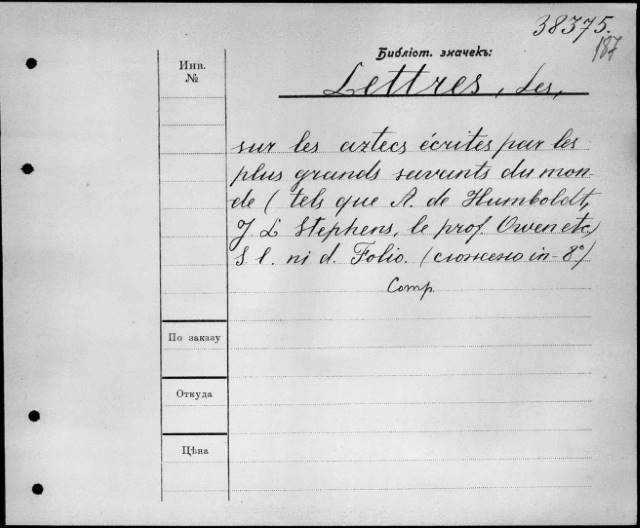 38375.
187
Библіот. значекъ:
Инв.
№
Lettres, Les,
sur les aztecs écrites par les
plus grands savants du mon-
de (tels que A. de Humboldt,
J. L Stephens, le prof. Owen etc)
S. l. ni d. Folio. (сложено in-8°)
Comp.
По заказу
Откуда
Цѣна